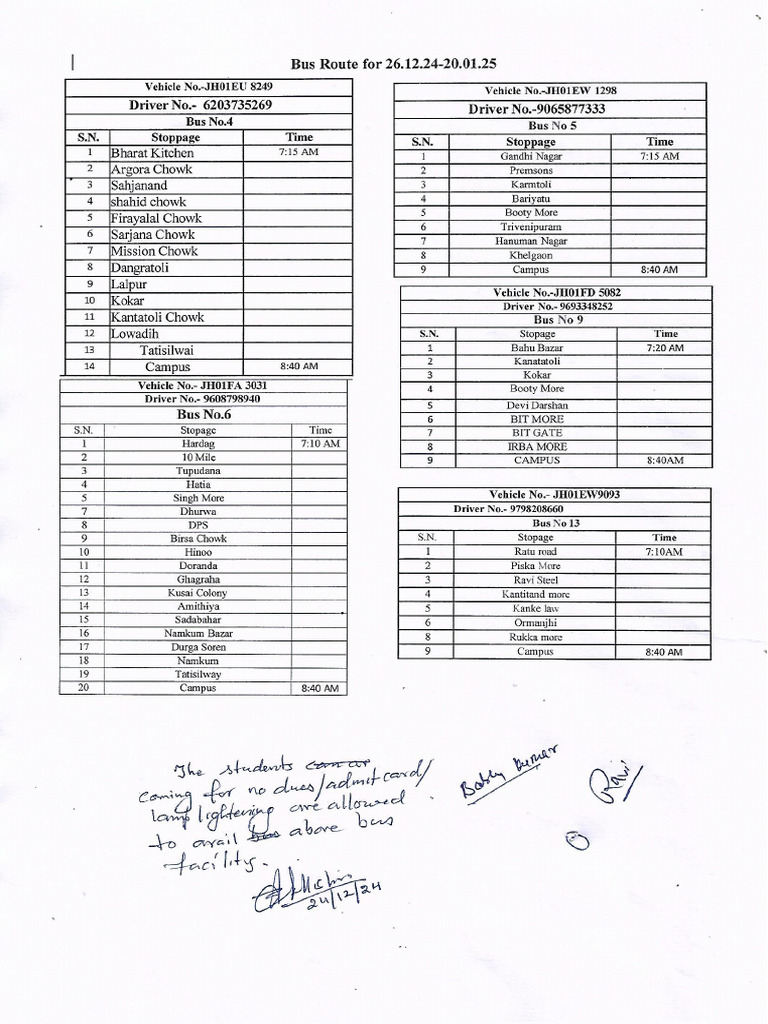 Bus Route for 26.12.24-20.01.25
Vehicle No.-JH01EU 8249
Driver No.- 6203735269
Bus No.4
S.N. Stoppage Time
1 Bharat Kitchen 7:15 AM
2 Argora Chowk
3 Sahjanand
4 shahid chowk
5 Firayalal Chowk
6 Sarjana Chowk
7 Mission Chowk
8 Dangratoli
9 Lalpur
10 Kokar
11 Kantatoli Chowk
12 Lowadih
13 Tatisilwai
14 Campus 8:40 AM
Vehicle No.- JH01FA 3031
Driver No.- 9608798940
Bus No.6
S.N. Stopage Time
1 Hardag 7:10 AM
2 10 Mile
3 Tupudana
4 Hatia
5 Singh More
7 Dhurwa
8 DPS
9 Birsa Chowk
10 Hinoo
11 Doranda
12 Ghagraha
13 Kusai Colony
14 Amithiya
15 Sadabahar
16 Namkum Bazar
17 Durga Soren
18 Namkum
19 Tatisilway
20 Campus 8:40 AM
Vehicle No.-JH01EW 1298
Driver No.-9065877333
Bus No 5
S.N. Stoppage Time
1 Gandhi Nagar 7:15 AM
2 Premsons
3 Karmtoli
4 Bariyatu
5 Booty More
6 Trivenipuram
7 Hanuman Nagar
8 Khelgaon
9 Campus 8:40 AM
Vehicle No.-JH01FD 5082
Driver No.- 9693348252
Bus No 9
S.N. Stopage Time
1 Bahu Bazar 7:20 AM
2 Kanatatoli
3 Kokar
4 Booty More
5 Devi Darshan
6 BIT MORE
7 BIT GATE
8 IRBA MORE
9 CAMPUS 8:40AM
Vehicle No.- JH01EW9093
Driver No.- 9798208660
Bus No 13
S.N. Stopage Time
1 Ratu road 7:10AM
2 Piska More
3 Ravi Steel
4 Kantitand more
5 Kanke law
6 Ormanjhi
8 Rukka more
9 Campus 8:40 AM
The students
coming for no dues/admit card/
lamp lightening are allowed
to avail above bus
facility.
24/12/24
Bobby Kumar
Ravi